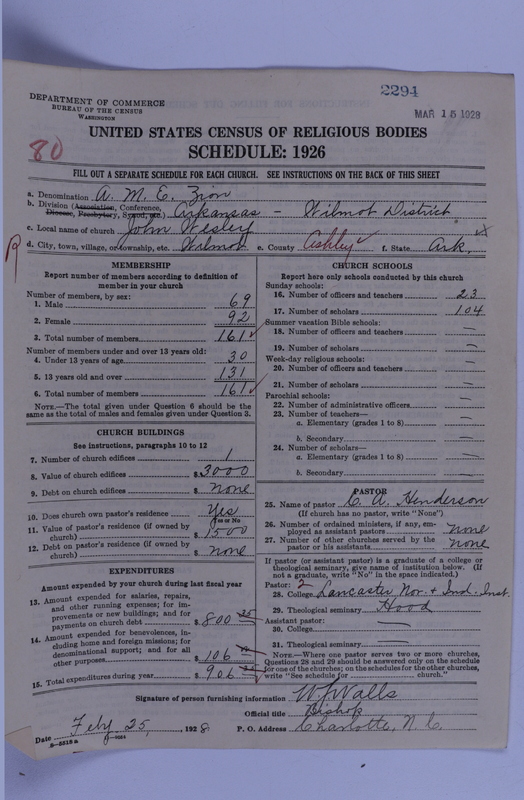 2294
DEPARTMENT OF COMMERCE
BUREAU OF THE CENSUS
WASHINGTON
MAR 15 1928
UNITED STATES CENSUS OF RELIGIOUS BODIES
80
SCHEDULE: 1926
FILL OUT A SEPARATE SCHEDULE FOR EACH CHURCH. SEE INSTRUCTIONS ON THE BACK OF THIS SHEET
a. Denomination A. M. E. Zion
b. Division (Association, Conference, Diocese, Presbytery, Synod, etc.) Arkansas - Wilmot District
c. Local name of church John Wesley
R
d. City, town, village, or township, etc. Wilmot e. County Ashley f. State Ark.
MEMBERSHIP
Report number of members according to definition of
member in your church
Number of members, by sex:
1. Male 69
2. Female 92
3. Total number of members 161
Number of members under and over 13 years old:
4. Under 13 years of age 30
5. 13 years old and over 131
6. Total number of members 161
NOTE.—The total given under Question 6 should be the
same as the total of males and females given under Question 3.
CHURCH BUILDINGS
See instructions, paragraphs 10 to 12
7. Number of church edifices 1
8. Value of church edifices $3000
9. Debt on church edifices $ none
10. Does church own pastor's residence Yes
Yes or No
11. Value of pastor's residence (if owned by
church) $1500
12. Debt on pastor's residence (if owned by
church) $ none
EXPENDITURES
Amount expended by your church during last fiscal year
13. Amount expended for salaries, repairs,
and other running expenses; for im-
provements or new building; and for
payments on church debt $800
14. Amount expended for benevolences, in-
cluding home and foreign missions; for
denominational support; and for all
other purposes $106
15. Total expenditures during year $906
CHURCH SCHOOLS
Report here only schools conducted by this church
Sunday schools:
16. Number of officers and teachers 23
17. Number of scholars 104
Summer vacation Bible schools:
18. Number of officers and teachers —
19. Number of scholars —
Week-day religious schools:
20. Number of officers and teachers —
21. Number of scholars —
Parochial schools:
22. Number of administrative officers —
23. Number of teachers—
a. Elementary (grades 1 to 8) —
b. Secondary —
24. Number of scholars—
a. Elementary (grades 1 to 8) —
b. Secondary —
PASTOR
25. Name of pastor C. A. Henderson
(If church has no pastor, write "None")
26. Number of ordained ministers, if any, em-
ployed as assistant pastors none
27. Number of other churches served by the
pastor or his assistants none
If pastor (or assistant pastor) is a graduate of a college or
theological seminary, give name of institution below. (If
not a graduate, write "No" in the space indicated.)
Pastor: 2
28. College Lancaster Nor. & Ind. Inst.
29. Theological seminary Hood
Assistant pastor:
30. College —
31. Theological seminary —
NOTE.—Where one pastor serves two or more churches,
Questions 28 and 29 should be answered only on the schedule
for one of the churches; on the schedules for the other churches,
write "See schedule for church."
Signature of person furnishing information W J Walls
Official title Bishop
Date Feby. 25, 1928 P. O. Address Charlotte, N. C.
8-5518 a